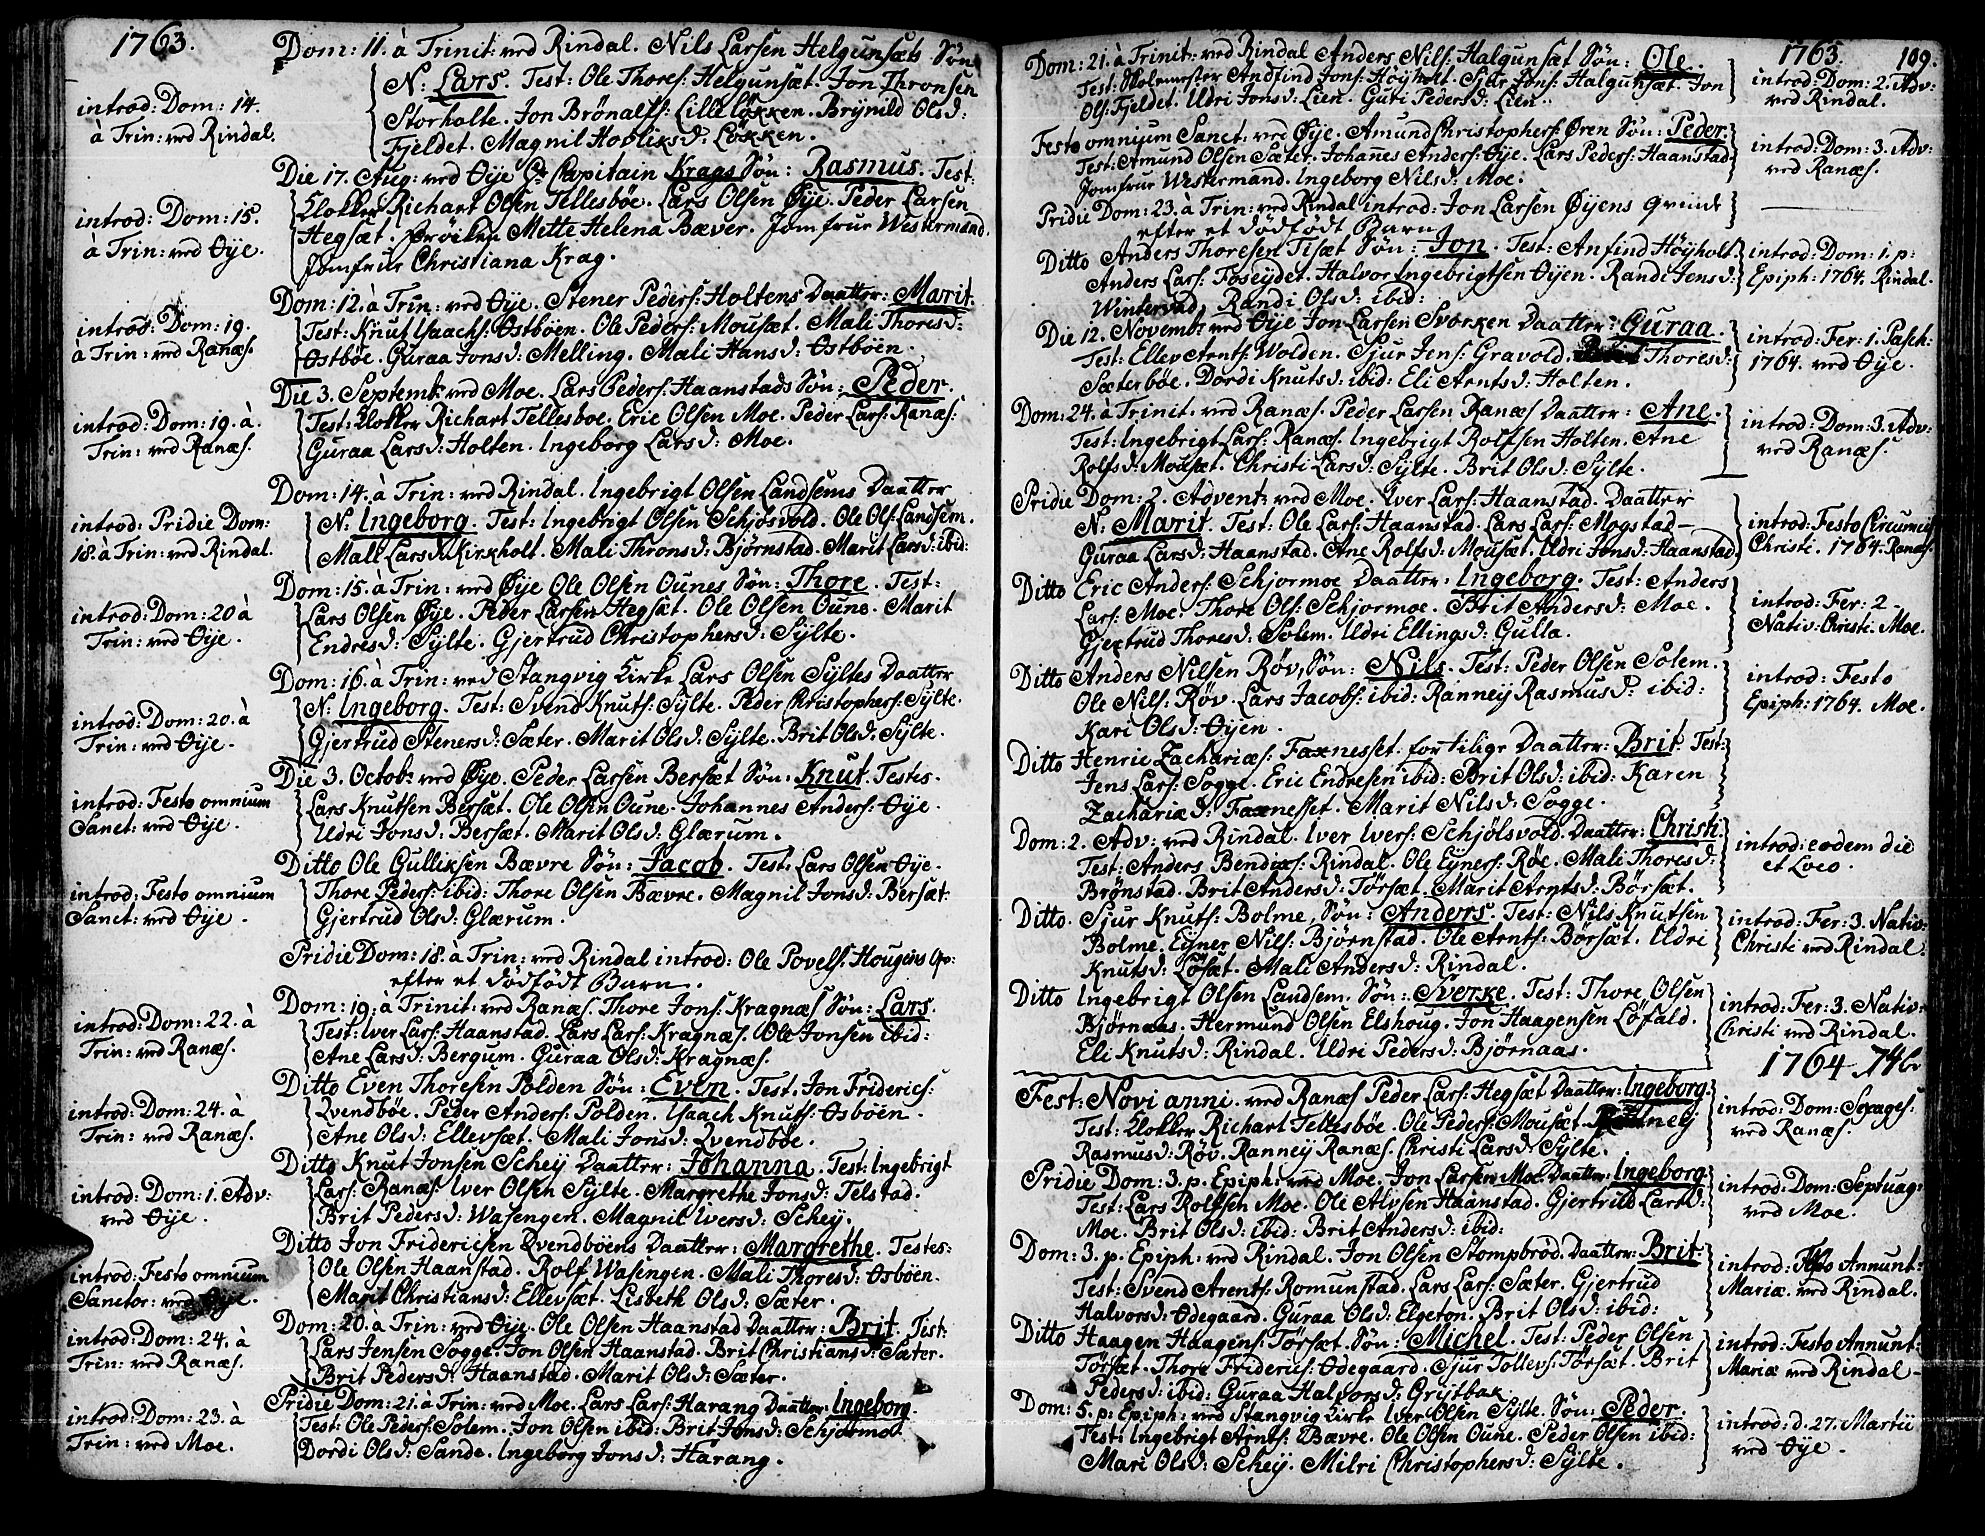 1763.
Dom: 11. à Trinit: ved Rindal. Nils Larsen Helgunsæts Søn
N: Lars. Test: Ole Thores: Helgunsæt. Jon Thronsen
Storholte. Jon Brønalfs: Lilleløkken. Brynild Olsd:
Fjeldet. Magnil Hovliksd: Løkken.
introd: Dom: 14.
a Trin: ved Rindal.
Die 17. Aug: ved Øye Hr Capitain Krags Søn: Rasmus. Test:
Klokker Richart Olsen Tellesbøe. Lars Olsen Øye. Peder Larsen
Hegsæt. Frøiken Mette Helena Bæver. Jomfrue Westermand.
Jomfrue Christiana Krag.
introd: Dom: 15.
à Trin: ved Øye.
Dom: 12. à Trin: ved Øye. Stener Peders: Holtens Daatter: Marit.
Test: Knut Isaachs: Østbøen. Ole Peders: Mousæt. Mali Thoresd:
Østbøe. Guraa Jonsd: Melling. Mali Hansd: Østbøen.
introd: Dom: 19.
à Trin: ved Ranæs.
Die 3. Septemb: ved Moe. Lars Peders: Haanstads Søn: Peder.
Test: Klokker Richart Tellesboe. Eric Olsen Moe. Peder Lars: Ranæs:
Guraa Larsd: Holten. Ingeborg Larsd: Moe.
introd: Dom: 19. à.
Trin: ved Ranæs.
Dom: 14. à Trin: ved Rindal. Ingebrigt Olsen Landsems Daatter
N: Ingeborg. Test: Ingebrigt Olsen Schjøsvold. Ole Ols: Landsem.
Mali Larsd: Kirkholt. Mali Thronsd: Bjørnstad. Marit Larsd: ibid:
introd: Pridie Dom:
18. à Trin: ved Rindal.
Dom: 15. à Trin: ved Øye Ole Olsen Ounes Søn: Thore. Test:
Lars Olsen Øye. Peder Larsen Hegsæt. Ole Olsen Oune. Marit
Endresd: Sylte. Gjertrud Christophersd: Sylte.
introd: Dom: 20 à
Trin: ved Øye.
Dom: 16. à Trin: ved Stangvig Kirke Lars Olsen Syltes Daatter
N: Ingeborg. Test: Svend Knuts: Sylte. Peder Christophers: Sylte.
Gjertrud Stenersd: Sæter. Marit Olsd: Sylte. Brit Olsd: Sylte.
introd: Dom: 20. à
Trin: ved Øye.
Die 3. Octob: ved Øye. Peder Larsen Bersæt Søn: Knut. Testes.
Lars Knutsen Bersæt. Ole Olsen Oune. Johannes Anders: Øye.
Udri Jonsd: Bersæt. Marit Olsd: Glærum.
introd: Festo omnium
Sanct: ved Øye.
Ditto Ole Gulliksen Bævre Søn: Jacob. Test: Lars Olsen Øye.
Thore Peders: ibid: Thore Olsen Bævre. Magnil Jonsd: Bersæt.
Gjertrud Olsd: Glærum.
introd: Festo omnium
Sanct: ved Øye.
Pridie Dom: 18. à Trin: ved Rindal introd: Ole Povels: Hougens Qv:
efter et dødfødt Barn.
Dom: 19. à Trinit: ved Ranæs. Thore Jons: Kragnæs Søn: Lars.
Test: Iver Lars: Haanstad. Lars Lars: Kragnæs. Ole Jonsen ibid:
Ane Larsd: Bergum. Guraa Olsd: Kragnæs.
introd: Dom: 22. à
Trin: ved Ranæs.
Ditto Even Thoresen Polden Søn: Even. Test: Jon Friderics:
Qvendbøe. Peder Anders: Polden. Isaach Knuts: Østbøen.
Ane Olsd: Ellevsæt. Mali Jonsd: Qvendbøe.
introd: Dom: 24. à
Trin: ved Ranæs.
Ditto Knut Jonsen Schey Daatter: Johanna. Test: Ingebrigt
Lars: Ranæs. Iver Olsen Sylte. Margrethe Jonsd: Telstad.
Brit Pedersd: Wasengen. Magnil Iversd: Schey.
introd: Dom: 1. Adv:
ved Øye.
Ditto Jon Fridericsen Qvendbøens Daatter: Margrethe. Testes:
Ole Olsen Haanstad. Rolf Wasengen. Mali Thoresd: Østbøen.
Marit Christiansd: Ellevsæt. Lisbeth Olsd: Sæter.
introd: Festo omnium
Sanctor: ved Øye.
Dom: 20. a Trin: ved Øye. Ole Olsen Haanstad Daatter: Brit. Test:
Lars Jensen Sogge. Jon Olsen Haanstad. Brit Christiansd: Sæter.
Brit Pedersd: Haanstad. Marit Olsd: Sæter.
introd: Dom: 24. à
Trin: ved Ranæs.
Pridie Dom: 21. à Trin: ved Moe. Lars Lars: Harang Daatter: Ingeborg.
Test: Ole Peders: Solem. Jon Olsen ibid: Brit Jonsd: Schjørmo.
Dordi Olsd: Sande. Ingeborg Jonsd: Harang.
introd: Dom: 23. à
Trin: ved Moe.
1763. 109.
Dom: 21. à Trinit: ved Rindal Anders Nils: Halgunsæt Søn: Ole.
Test: Skolemester Andfind Jons: Höyholt. Siur Jons: Halgunsæt. Jon
Ols: Fjeldet. Udri Jonsd: Lien. Guri Pedersd: Lien.
introd: Dom: 2. Adv:
ved Rindal.
Festo omnium Sanct: ved Øye. Amund Christophers: Øren Søn: Peder.
Test: Amund Olsen Sæter. Johannes Anders: Øye. Lars Peders: Haanstad
Jomfrue Westermand. Ingeborg Nilsd: Moe.
introd: Dom: 3. Adv:
ved Ranæs.
Pridie Dom: 23. à Trin: ved Rindal introd: Jon Larsen Øyens Qvinde
efter et dødfødt Barn
Ditto Anders Thoresen Tisæt Søn: Jon. Test: Anfind Höyholt
Anders Lars: Foseydet. Halvor Ingebrigtsen Øyen. Randi Jensd:
Wintervad. Randi Olsd: ibid:
introd: Dom: 1. p:
Epiph: 1764. Rindal.
Die 12. Novemb: ved Øye Jon Larsen Svorken Daatter: Guraa.
Test: Ellev Arnts: Wolden. Sjur Jens: Gravold. Thoresd:
Sæterbøe. Dordi Knutsd: ibid: Eli Arntsd: Holten.
introd: Fer: 1. Pasch:
1764. ved Øye.
Dom: 24. à Trinit: ved Ranæs. Peder Larsen Ranæs Daatter: Ane.
Test: Ingebrigt Lars: Ranæs. Ingebrigt Rolfsen Holten. Ane
Rolfsd: Mousæt. Christi Larsd: Sylte. Brit Olsd: Sylte.
introd: Dom: 3. Adv:
ved Ranæs.
Pridie Dom: 2. Advent: ved Moe. Iver Lars: Haanstad. Daatter
N: Marit. Test: Ole Lars: Haanstad. Lars Lars: Mogstad –
Guraa Larsd: Haanstad. Ane Rolfsd: Mousæt. Udri Jonsd: Haanstad.
introd: Festo Circumcis:
Christi. 1764. Ranæs.
Ditto Eric Anders: Schjormoe Daatter: Ingeborg. Test: Anders
Lars: Moe. Thore Ols: Schjormoe. Brit Andersd: Moe.
Gjertrud Thoresd: Solem. Udri Ellingsd: Gulla.
introd: Fer: 2 –
Nativ: Christi. Moe.
Ditto Anders Nilsen Røv, Søn: Nils. Test: Peder Olsen Solem.
Ole Nils: Røv. Lars Jacobs: ibid: Ranney Rasmusd: ibid:
Kari Olsd: Øyen.
introd: Festo
Epiph: 1764. Moe.
Ditto Henric Zachariæs: Faxnesset. fortilige Daatter: Brit. Test:
Jens Lars: Sogge. Eric Endresen ibid: Brit Olsd: ibid: Karen
Zachariæd: Faxnesset. Marit Nilsd: Sogge.
Dom: 2. Adv: ved Rindal. Iver Ivers: Schjølsvold. Daatter: Christi.
Test: Anders Bendixs: Rindal. Ole Eyners: Røe. Mali Thoresd:
Brønstad. Brit Andersd: Törsæt. Marit Arntsd: Börsæt.
introd: eodem die
et Loco.
Ditto. Sjur Knuts: Bolme, Søn: Anders. Test: Nils Knutsen
Bolme. Eyner Nils: Bjørnstad. Ole Arnts: Børsæt. Udri
Knutsd: Løsæt. Mali Andersd: Rindal.
introd: Fer: 3. Nativ:
Christi ved Rindal.
Ditto Ingebrigt Olsen Landsem. Søn: Sverke. Test: Thore Olsen
Bjørnaas. Hermund Olsen Elshoug. Jon Haagensen Løfald.
Eli Knutsd: Rindal. Udri Pedersd: Bjørnaas.
introd: Fer: 3. Nativ:
Christi ved Rindal.
1764
Fest: Novi anni. ved Ranæs Peder Lars: Hegsæt Daatter: Ingeborg.
Test: Klokker Richart Tellesbøe. Ole Peders: Mousæt. Ranney
Rasmusd: Røv. Ranney Ranæs. Christi Larsd: Sylte.
introd: Dom: Sexages:
ved Ranæs.
Pridie Dom: 3. p. Epiph: ved Moe. Jon Larsen Moe. Daatter: Ingeborg
Test: Lars Rolfsen Moe. Ole Alvsen Haanstad. Gjertrud Larsd:
Moe. Brit Olsd: ibid: Brit Andersd: ibid:
introd: Dom: Septuag:
ved Moe.
Dom: 3. p. Epiph: ved Rindal. Jon Olsen Stompbrød. Daatter: Brit.
Test: Svend Arents: Romunstad. Lars Lars: Sæter. Gjertrud
Halvorsd: Ødegaard. Guraa Olsd: Elgeton. Brit Olsd: ibid:
introd: Festo Annunt:
Mariæ. ved Rindal.
Ditto Haagen Haagens: Törsæt. Søn: Michel. Test: Peder Olsen
Törsæt. Thore Friderics: Ødegaard. Sjur Tollevs: Törsæt. Brit
Pedersd: ibid: Guraa Halvorsd: Grytbak.
introd: Festo Annunt:
Mariæ ved Rindal –
Dom: 5. p: Epiph: ved Stangvig Kirke Iver Olsen Sylte. Søn: Peder.
Test: Ingebrigt Arnts: Bævre. Ole Olsen Oune. Peder Olsen ibid:
Mari Olsd: Schey. Milri Christophersd: Sylte.
introd: d. 27. Martii
ved Øye.